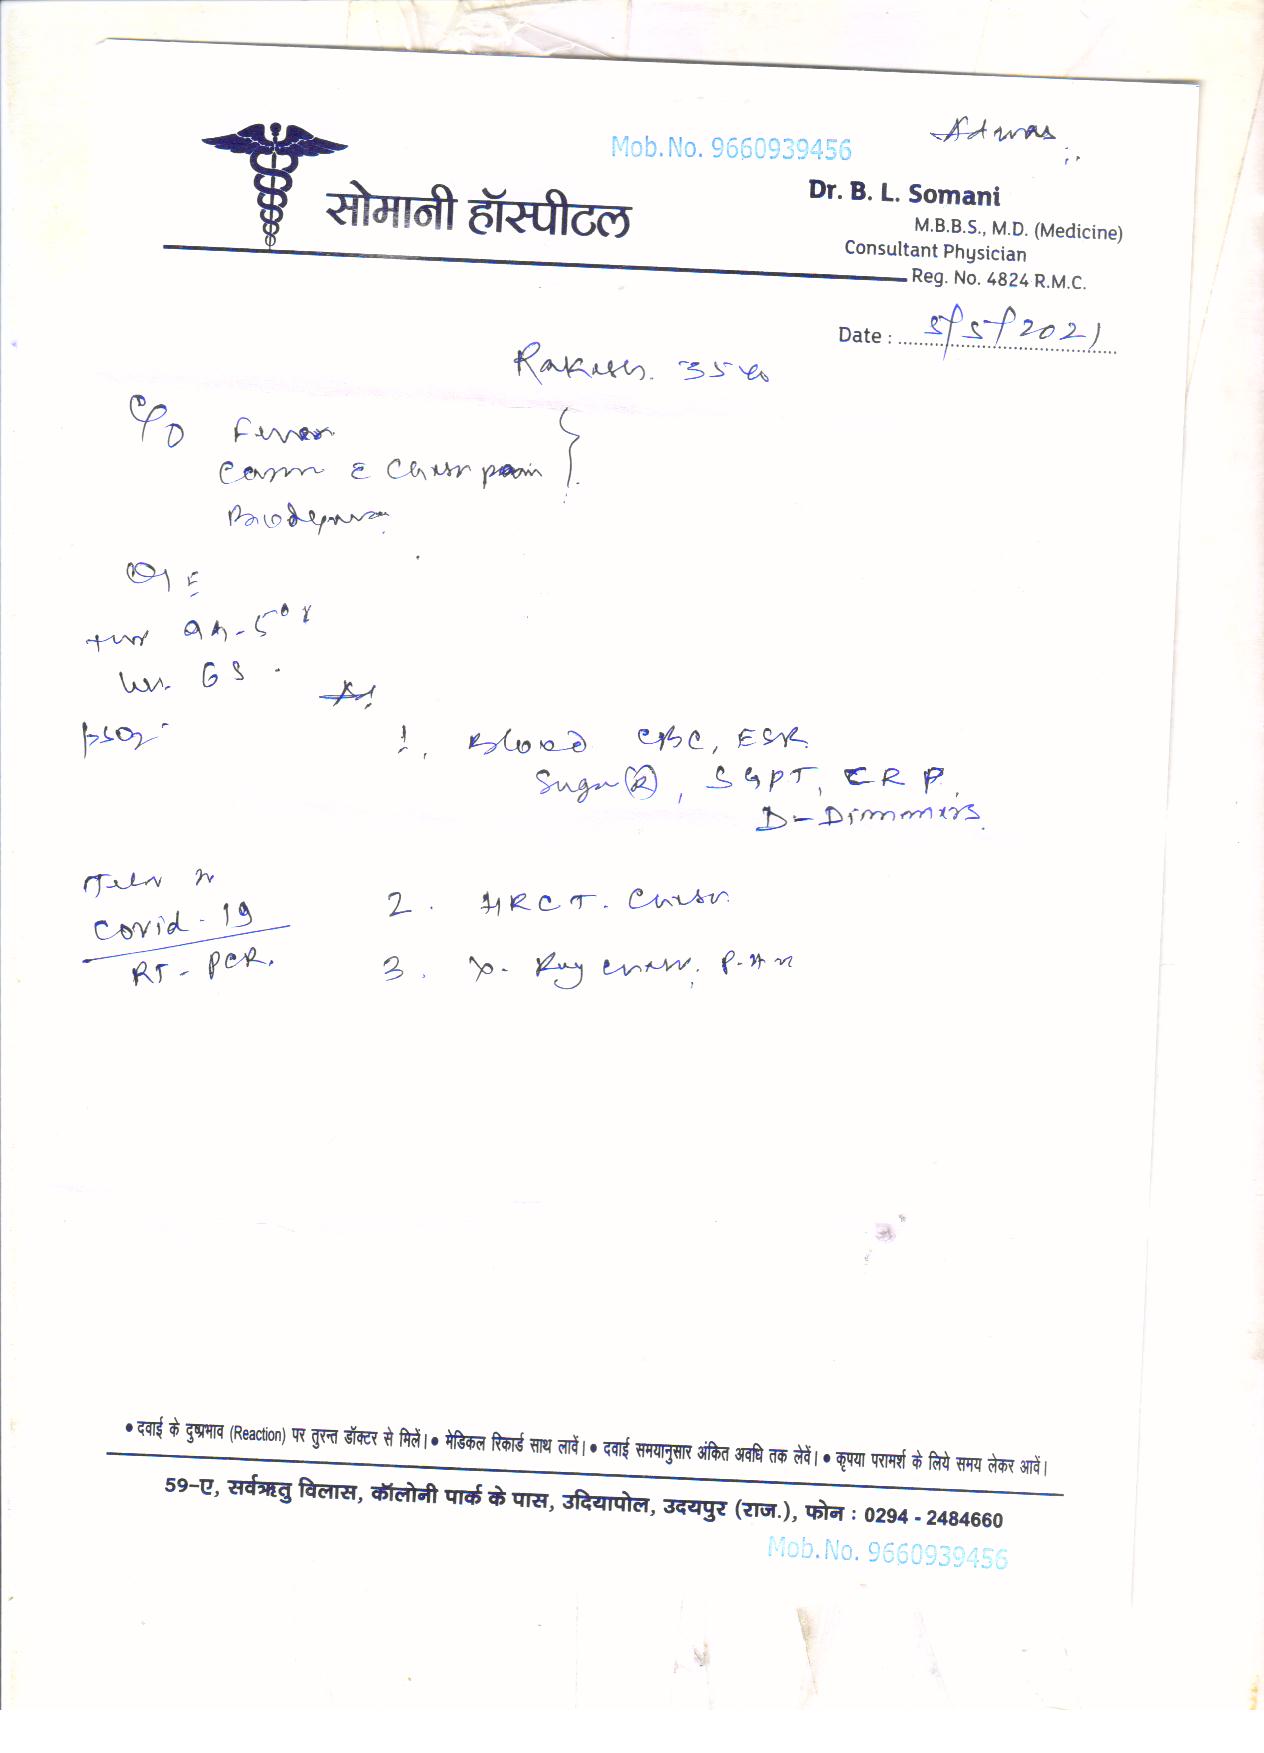 Mob.No. 9660939456
सोमानी हॉस्पीटल
Dr. B. L. Somani
M.B.B.S., M.D. (Medicine)
Consultant Physician
Reg. No. 4824 R.M.C.
Date : 5/5/2021
Rakesh. 35
C/O Fever
Chest pain
O/E
PSO2
1. Blood CBC, ESR
Sugar (R), SGPT, CRP,
D-Dimmers
Covid-19
RT-PCR.
2. HRCT. Chest
3. X-Ray Chest.
• दवाई के दुष्प्रभाव (Reaction) पर तुरन्त डॉक्टर से मिलें। • मेडिकल रिकार्ड साथ लावें। • दवाई समयानुसार अंकित अवधि तक लेवें। • कृपया परामर्श के लिये समय लेकर आवें।
59-ए, सर्वऋतु विलास, कॉलोनी पार्क के पास, उदियापोल, उदयपुर (राज.), फोन : 0294 - 2484660
Mob.No. 9660939456